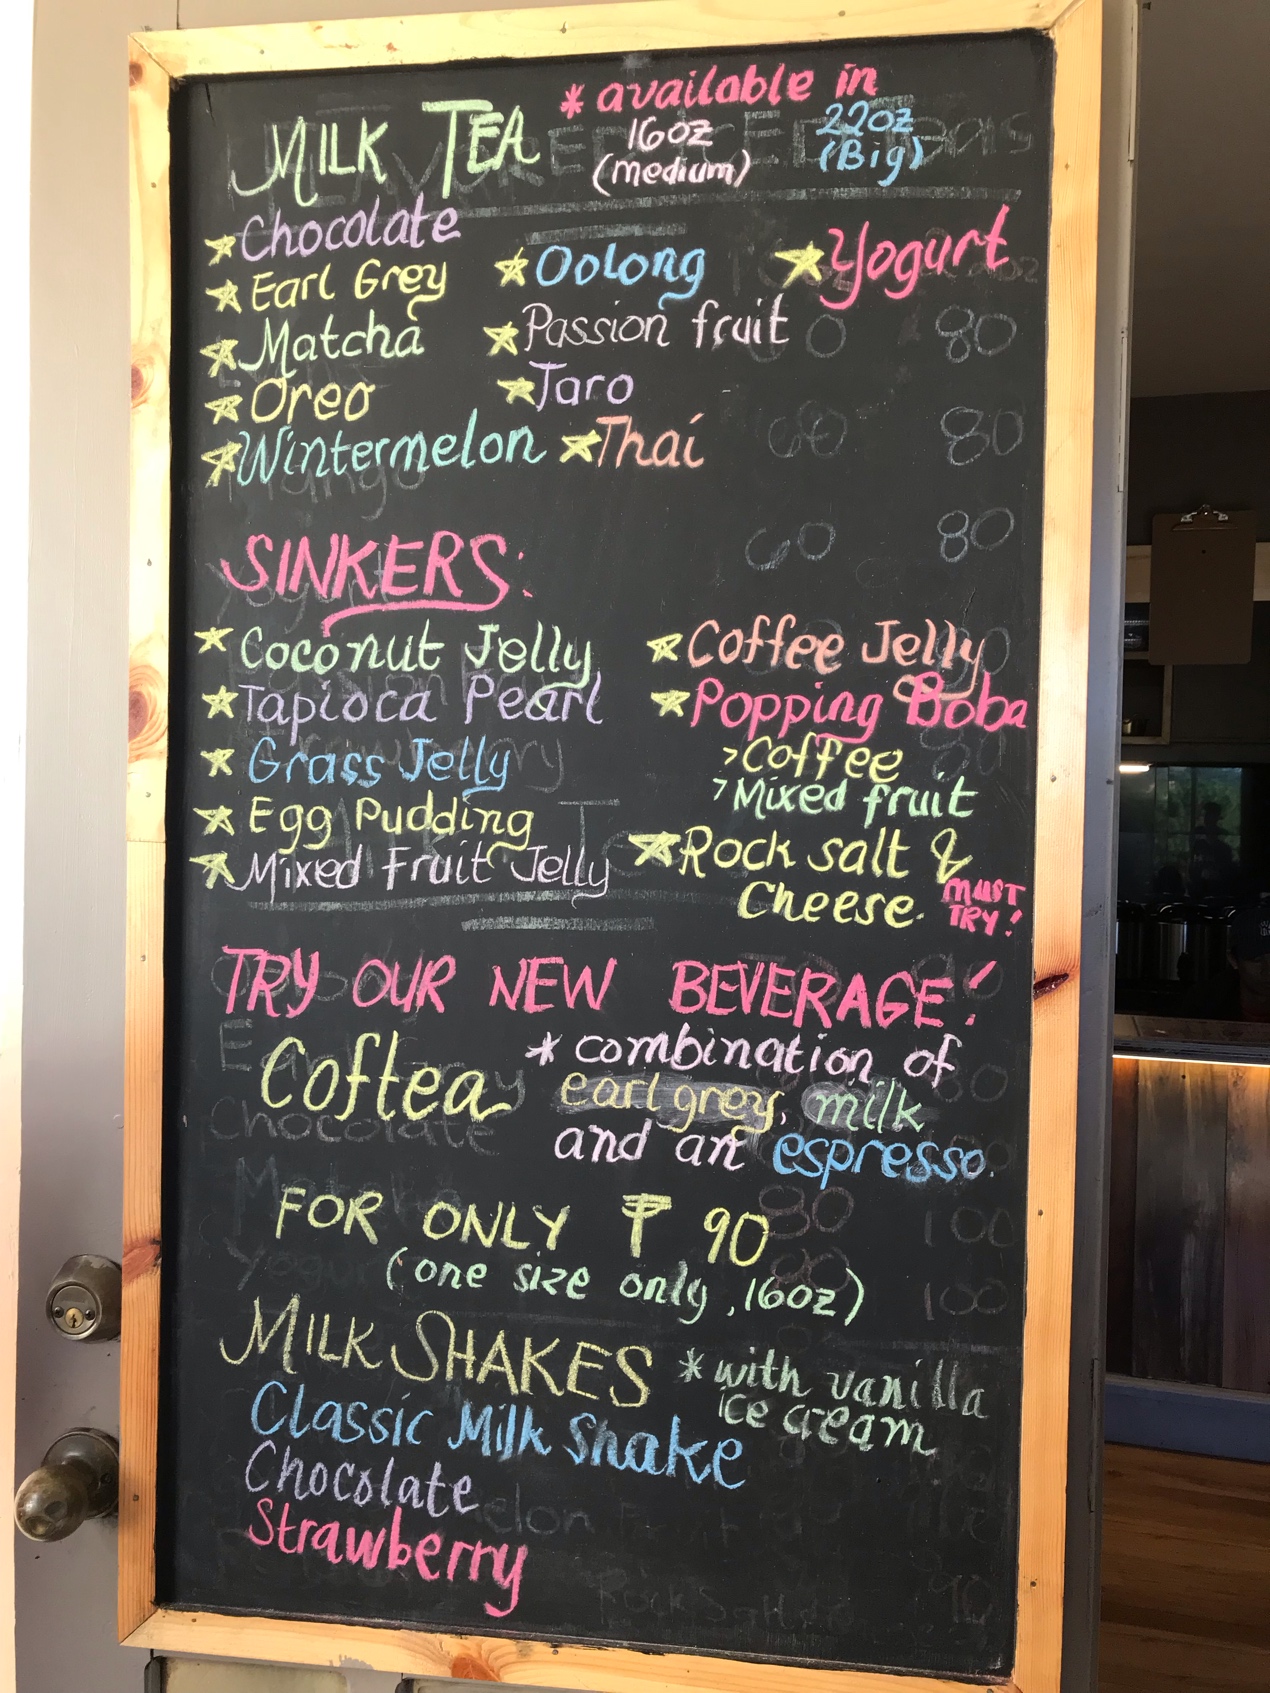 MILK TEA * available in
16oz 22oz
(medium) (Big)
Chocolate
Earl Grey
Matcha
Oreo
Wintermelon
Oolong
Passion fruit
Taro
Thai
Yogurt
SINKERS:
Coconut Jelly
Tapioca Pearl
Grass Jelly
Egg Pudding
Mixed Fruit Jelly
Coffee Jelly
Popping Boba
>Coffee
>Mixed fruit
Rock salt &
Cheese.
MUST
TRY!
TRY OUR NEW BEVERAGE!
Coftea
* combination of
earl grey, milk
and an espresso.
FOR ONLY ₱ 90
(one size only, 16oz)
MILK SHAKES
* with vanilla
ice cream
Classic Milk Shake
Chocolate
Strawberry